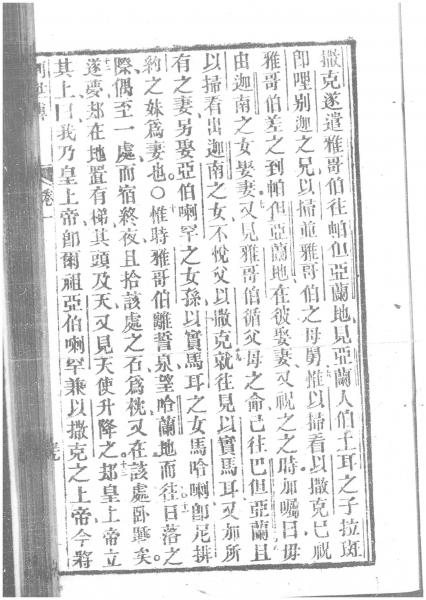 撒克遂遣雅哥伯往帕但亞蘭地見亞蘭人伯土耳之子拉班
即哩別迦之兄以掃並雅哥伯之母舅惟以掃看以撒克已祝
雅哥伯差之到帕但亞蘭地在彼娶妻又祝之之時加囑曰毋
由迦南之女娶妻又見雅哥伯循父母之命已往巴但亞蘭且
以掃看出迦南之女不悅父以撒克就往見以實馬耳又加所
有之妻另娶亞伯喇罕之女孫以實馬耳之女馬哈喇即尼排
約之妹為妻也○惟時雅哥伯離誓泉望哈蘭地而往日落之
際偶至一處而宿終夜且拾該處之石為枕又在該處臥睡矣
遂夢却在地置有梯其頭及天又見天使升降之却皇上帝立
其上曰我乃皇上帝即爾祖亞伯喇罕兼以撒克之上帝今將
卷一